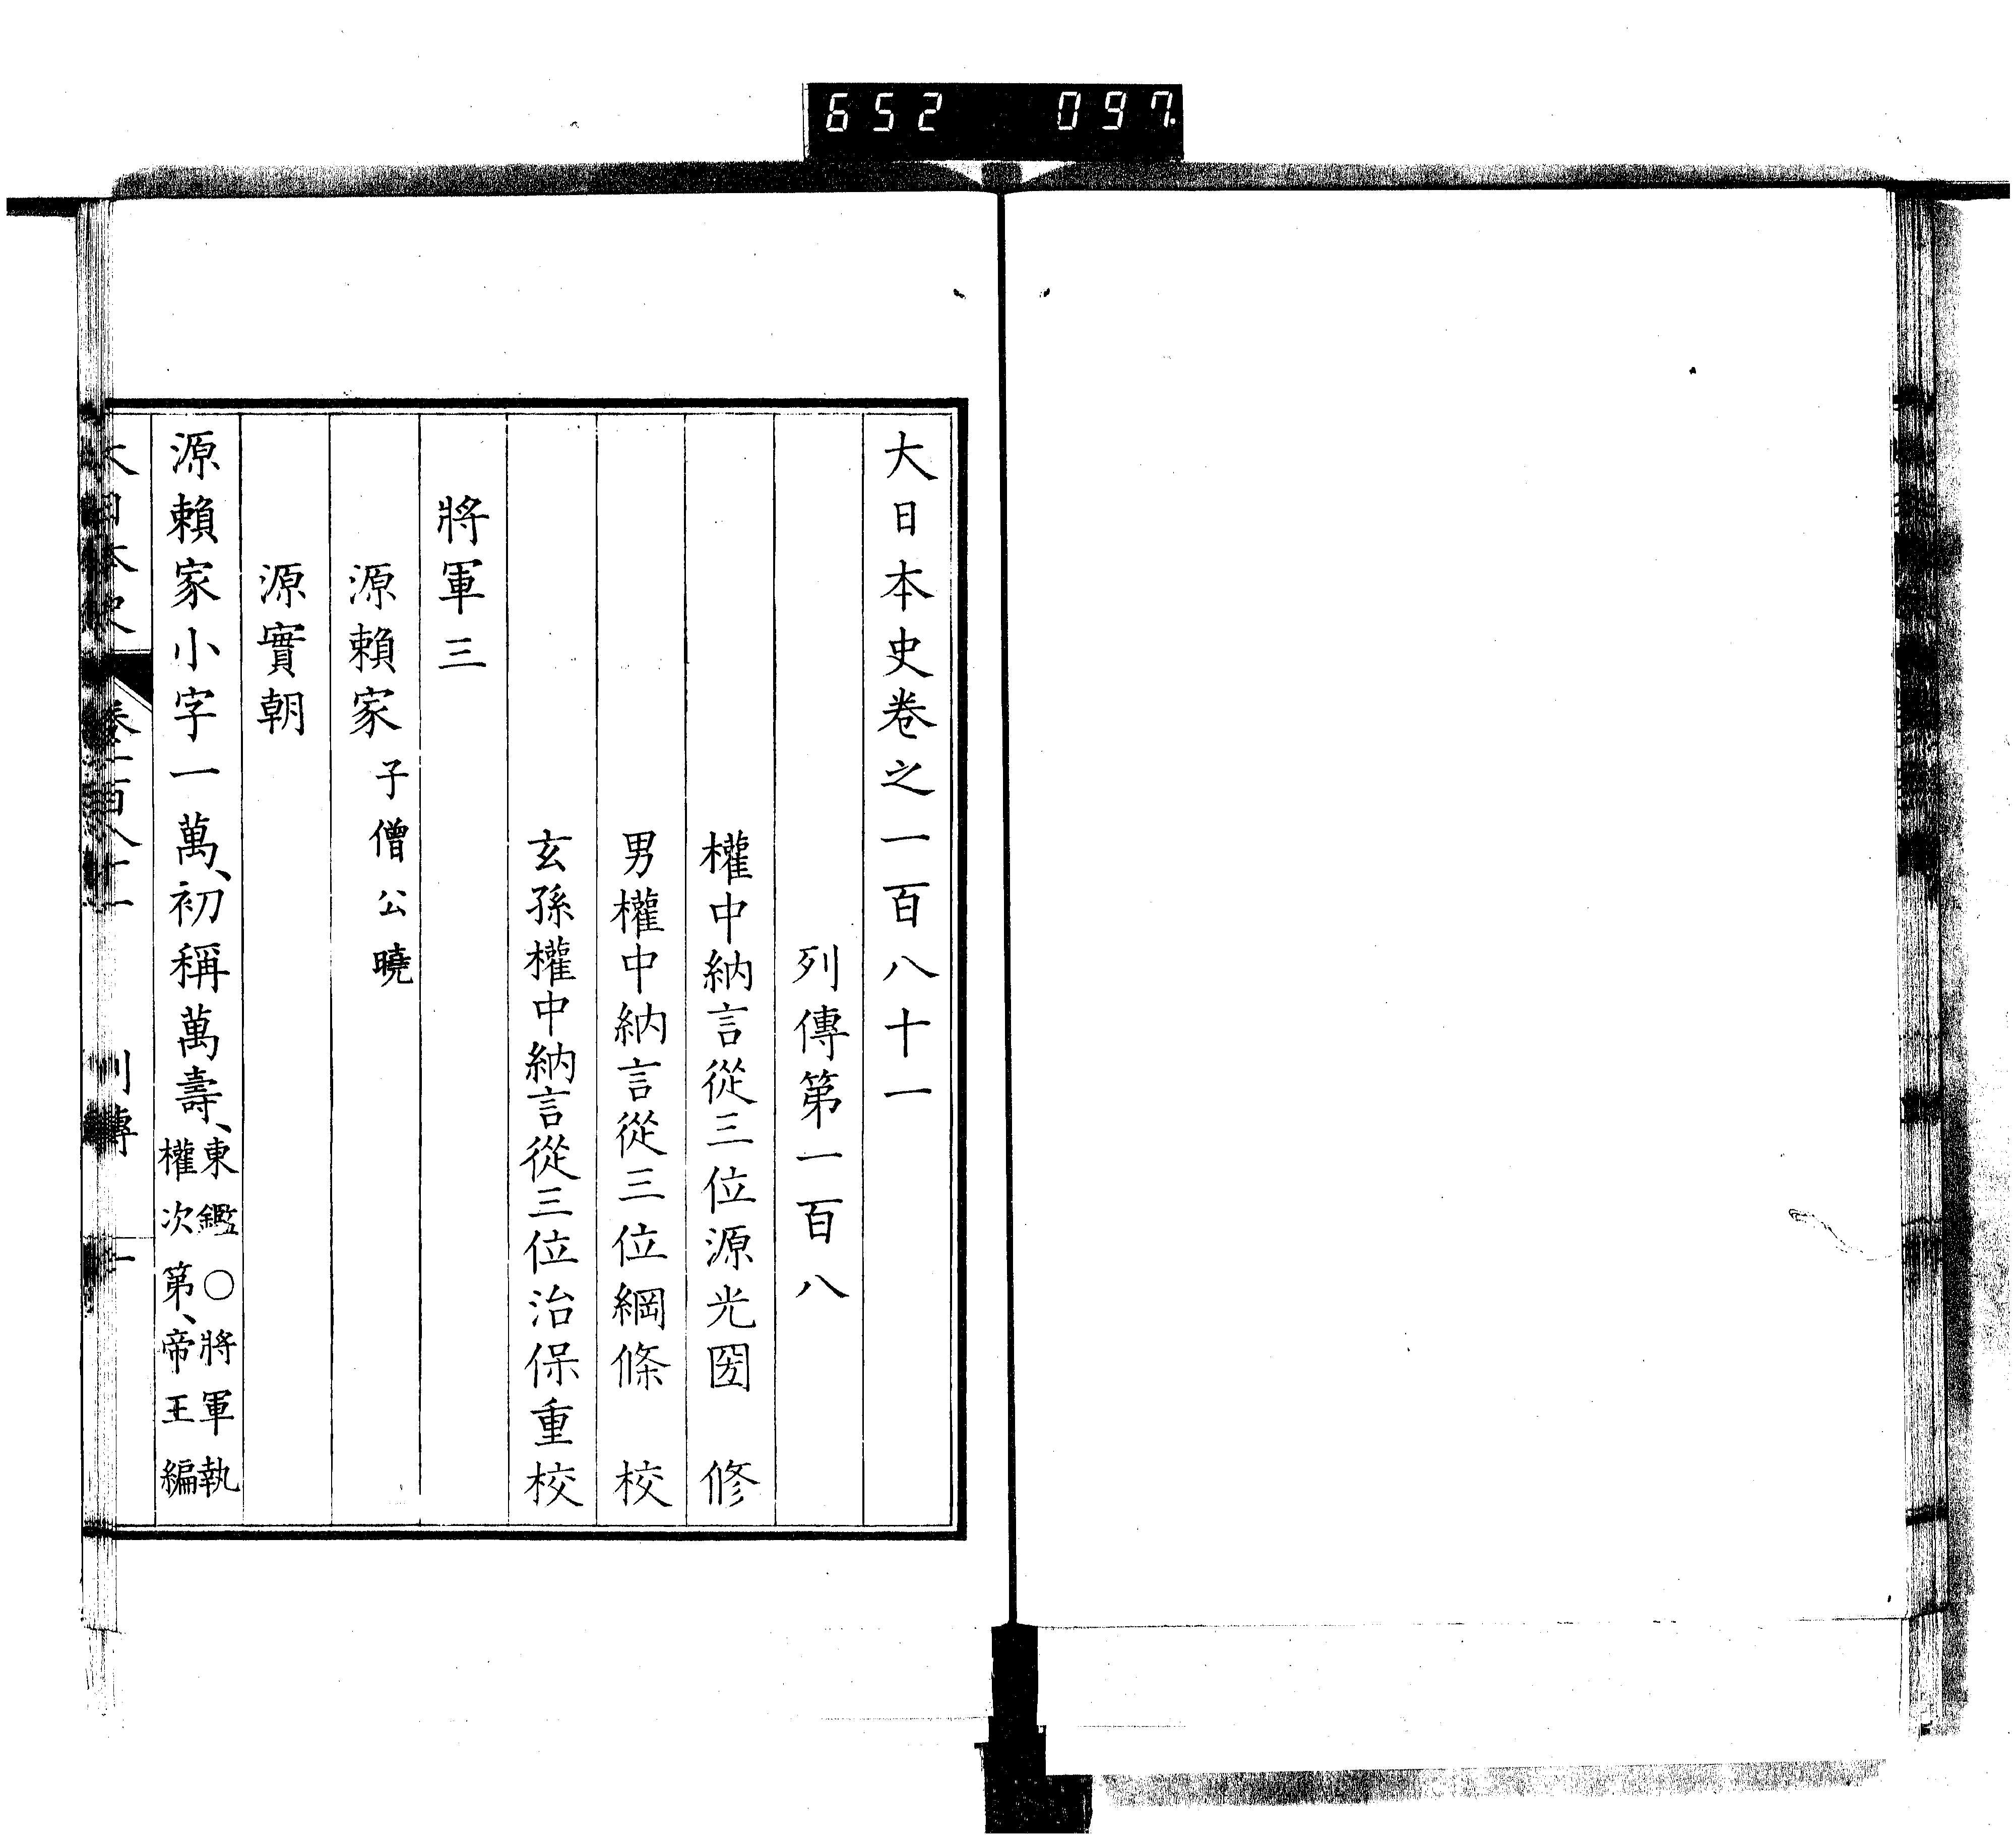 652 097
大日本史卷之一百八十一
列傳第一百八
權中納言從三位源光圀 修
男權中納言從三位綱條 校
玄孫權中納言從三位治保重校
將軍三
源賴家 子僧公曉
源實朝
源賴家小字一萬、初稱萬壽、東鑑○將軍執
權次第、帝王編
大日本史 卷一百八十一 列傳 一